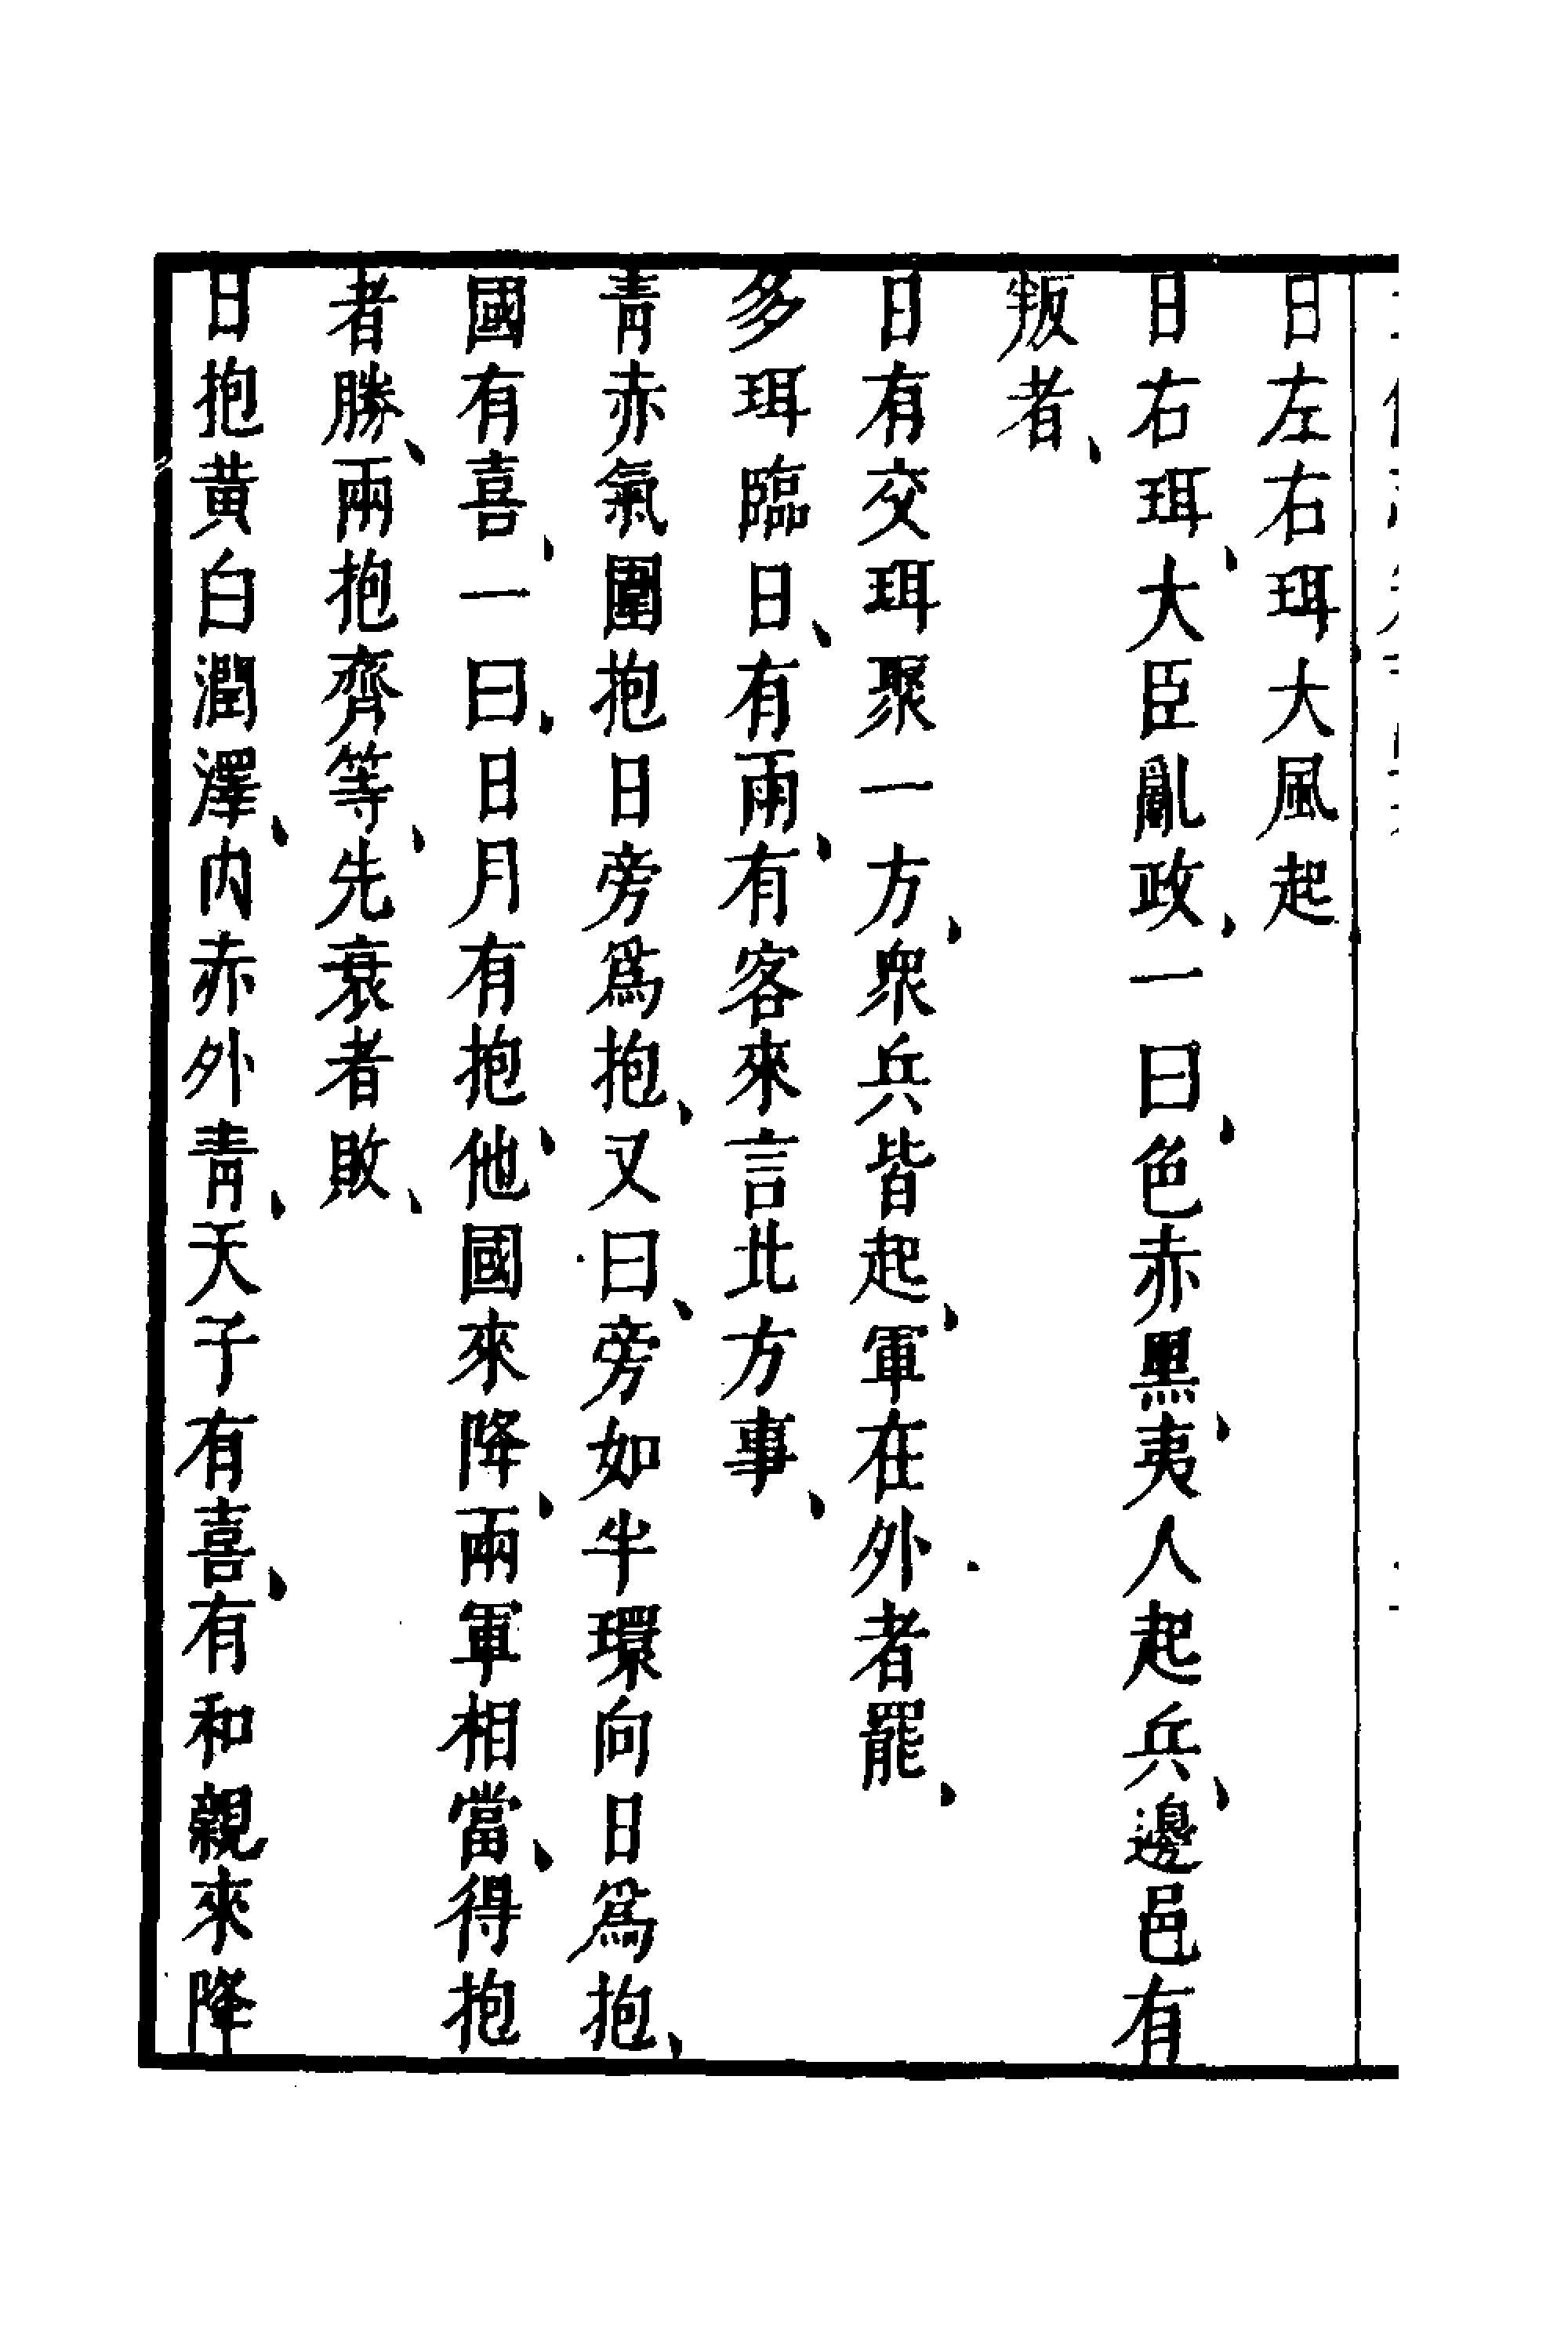 日左右珥大風起
日右珥、大臣亂政、一曰、色赤黑、夷人起兵、邊邑有
叛者、
日有交珥聚一方、衆兵皆起、軍在外者罷、
多珥臨日、有兩、有客來言北方事、
靑赤氣圍抱日旁爲抱、又曰、旁如半環向日爲抱、
國有喜、一曰、日月有抱、他國來降、兩軍相當、得抱
者勝、兩抱齊等、先衰者敗、
日抱黃白潤澤、內赤外靑、天子有喜、有和親來降